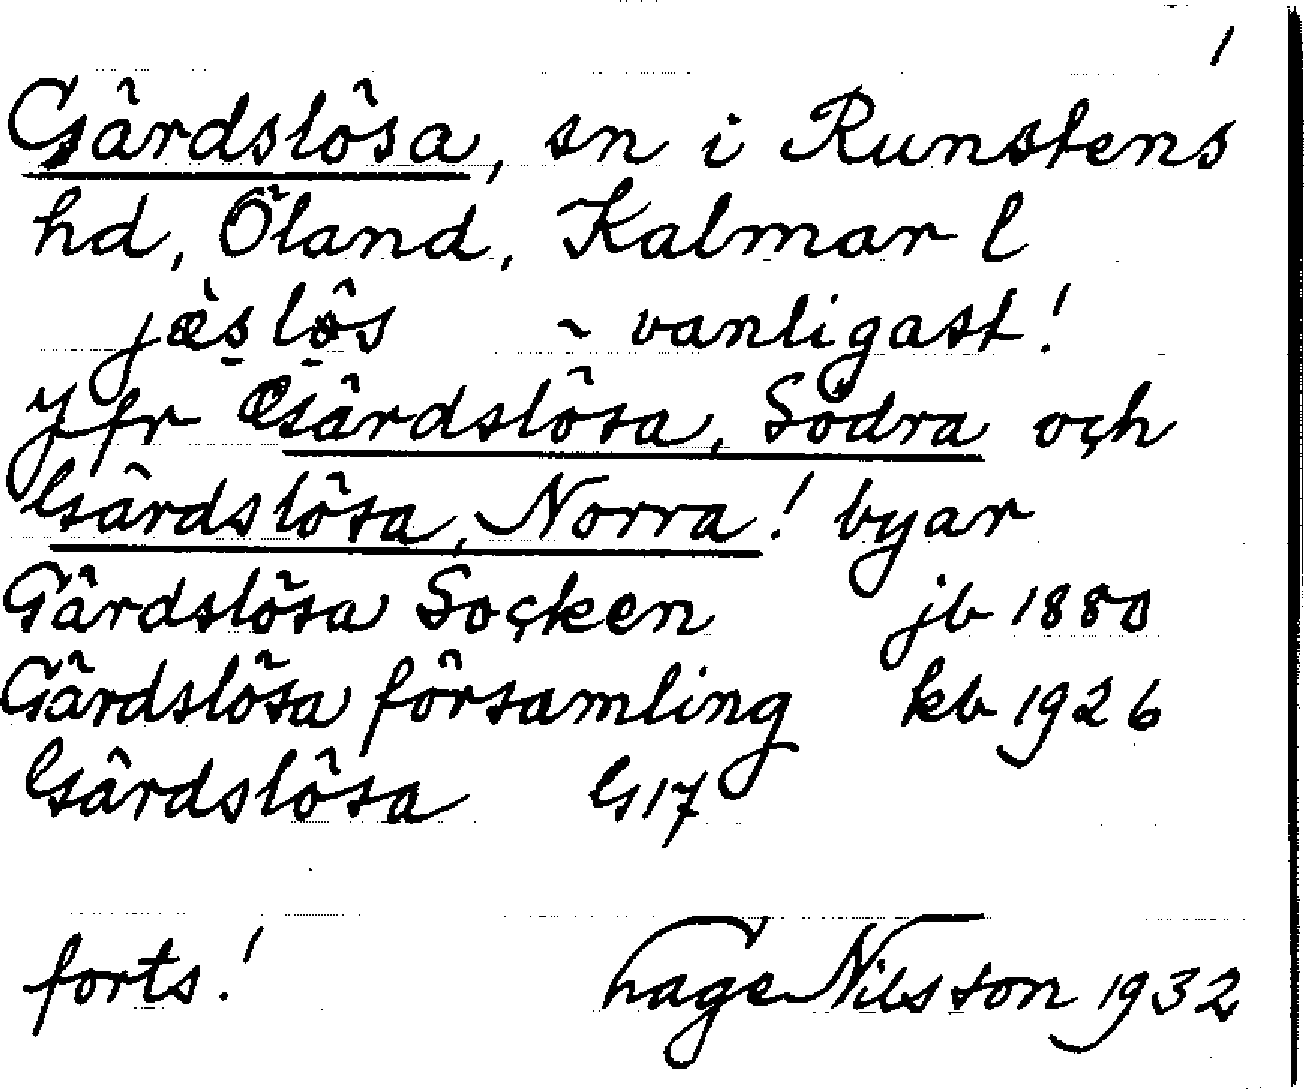 1
Gärdslösa, sn i Runstens
hd, Öland, Kalmar l
jæ̀s̱lö̱̂s ~ vanligast!
Jfr Gärdslösa, Södra och
Gärdslösa, Norra! byar
Gärdslösa Socken jb 1880
Gärdslösa församling kb 1926
Gärdslösa G17
forts! Hage Nilsson 1932